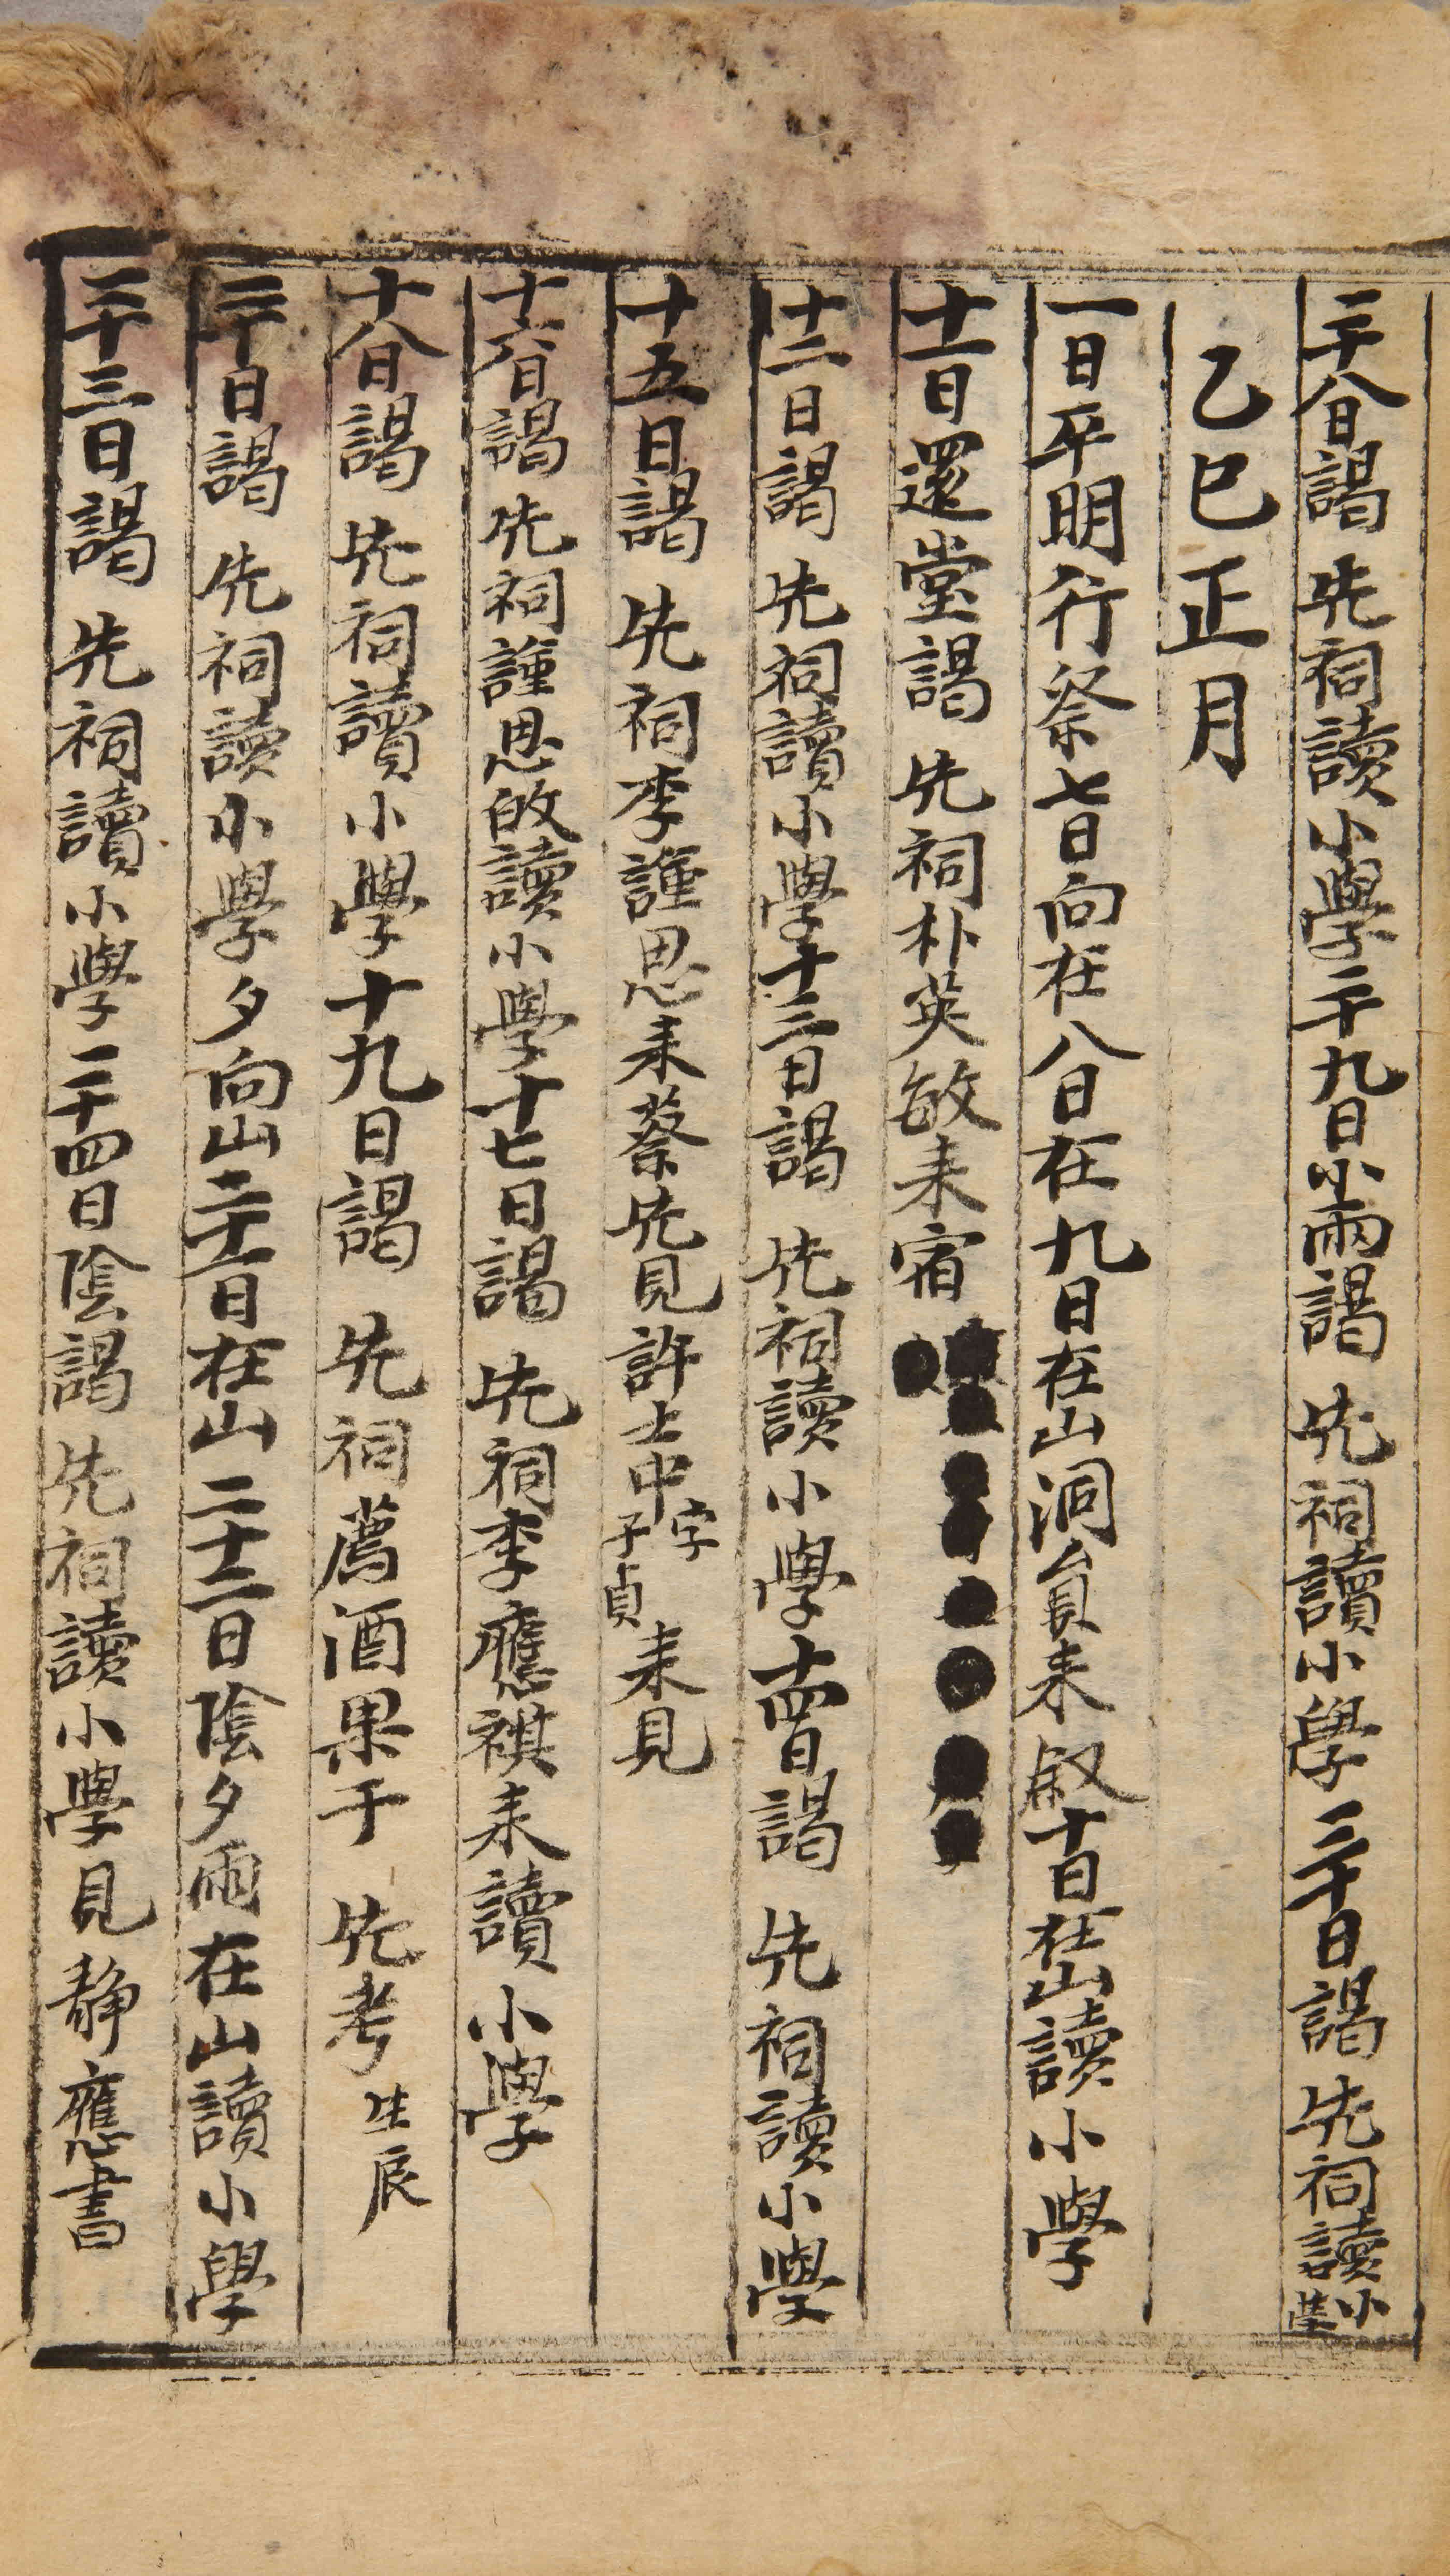 二十八日謁 先祠讀小學二十九日小雨謁 先祠讀小學三十日謁 先祠讀小學
乙巳正月
一日平明行祭七日向在八日在九日在山洞員来叙十日在山讀小學
十一日還堂謁 先祠朴英敏来宿
十二日謁 先祠讀小學十三日謁 先祠讀小學十四日謁 先祠讀小學
十五日謁 先祠李謹思来蔡先見許士中字子貞来見
十六日謁 先祠謹思啟讀小學十七日謁 先祠李應祺来讀小學
十八日謁 先祠讀小學十九日謁 先祠薦酒果于 先考生辰
二十日謁 先祠讀小學夕向山二十一日在山二十二日陰夕雨在山讀小學
二十三日謁 先祠讀小學二十四日陰謁 先祠讀小學見靜應書